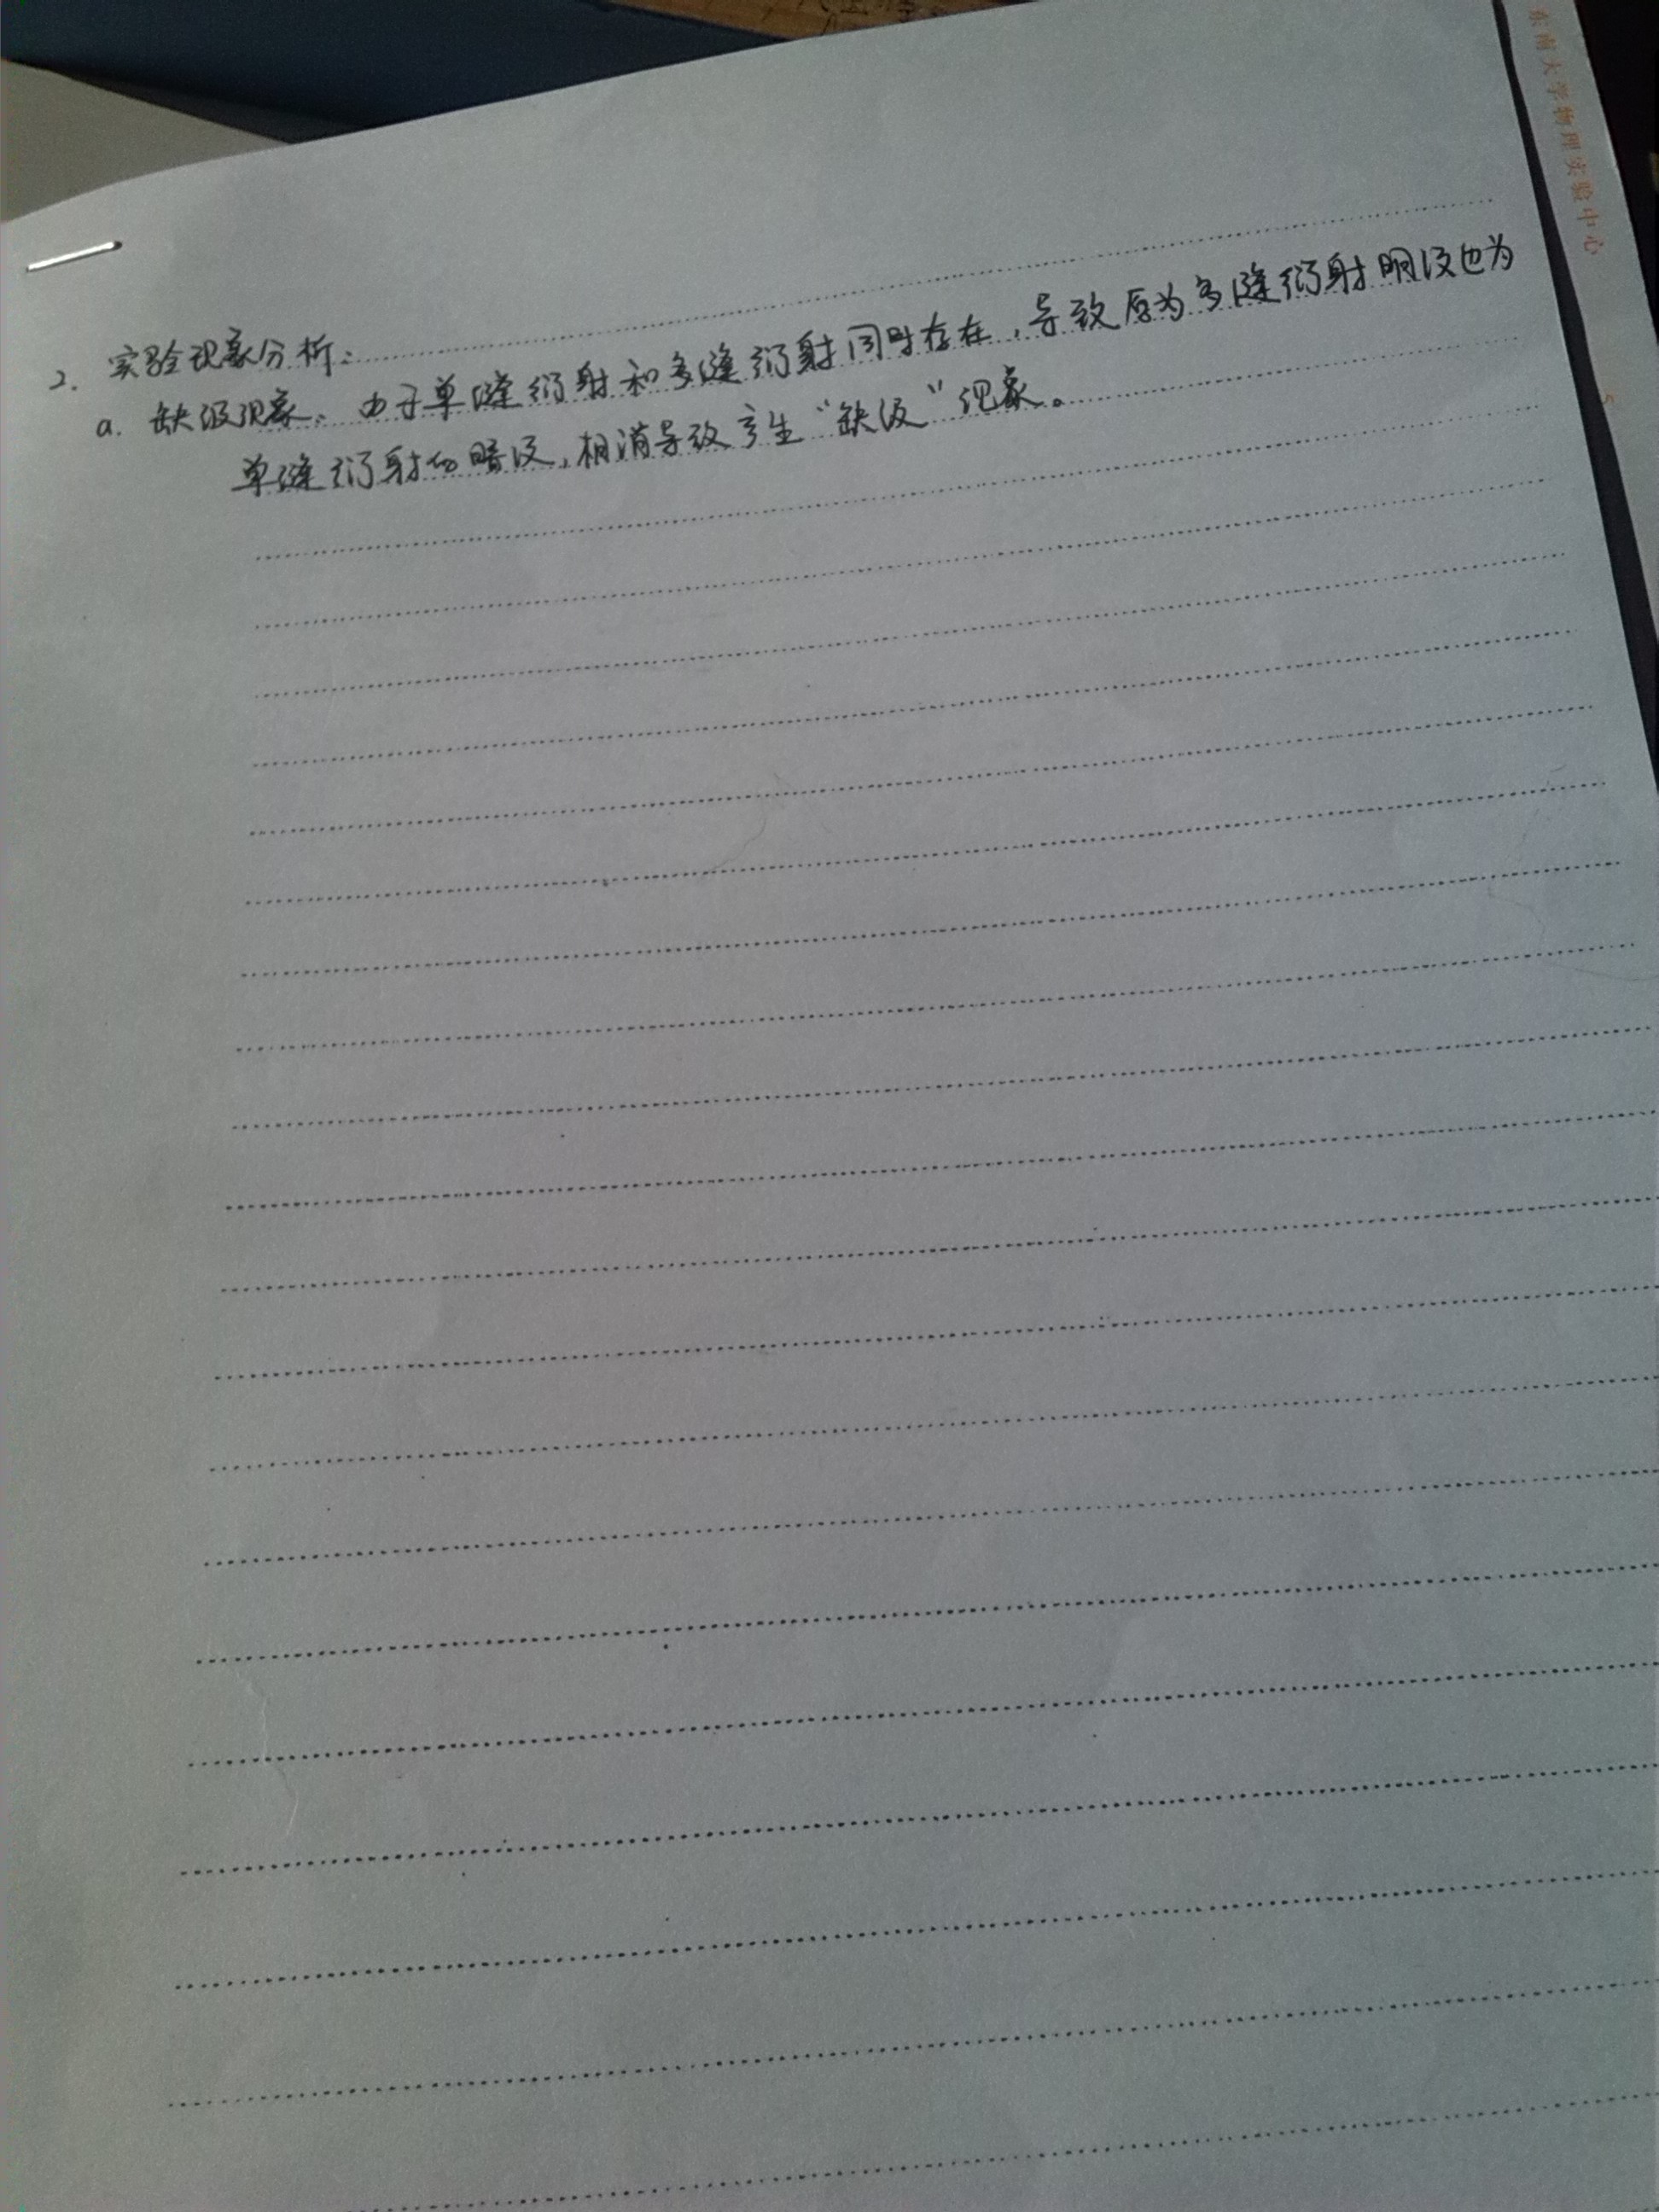 东南大学物理实验中心
2. 实验现象分析:
a. 缺级现象。由于单缝衍射和多缝衍射同时存在,导致原为多缝衍射明纹也为
单缝衍射的暗纹,相消导致产生“缺级”现象。